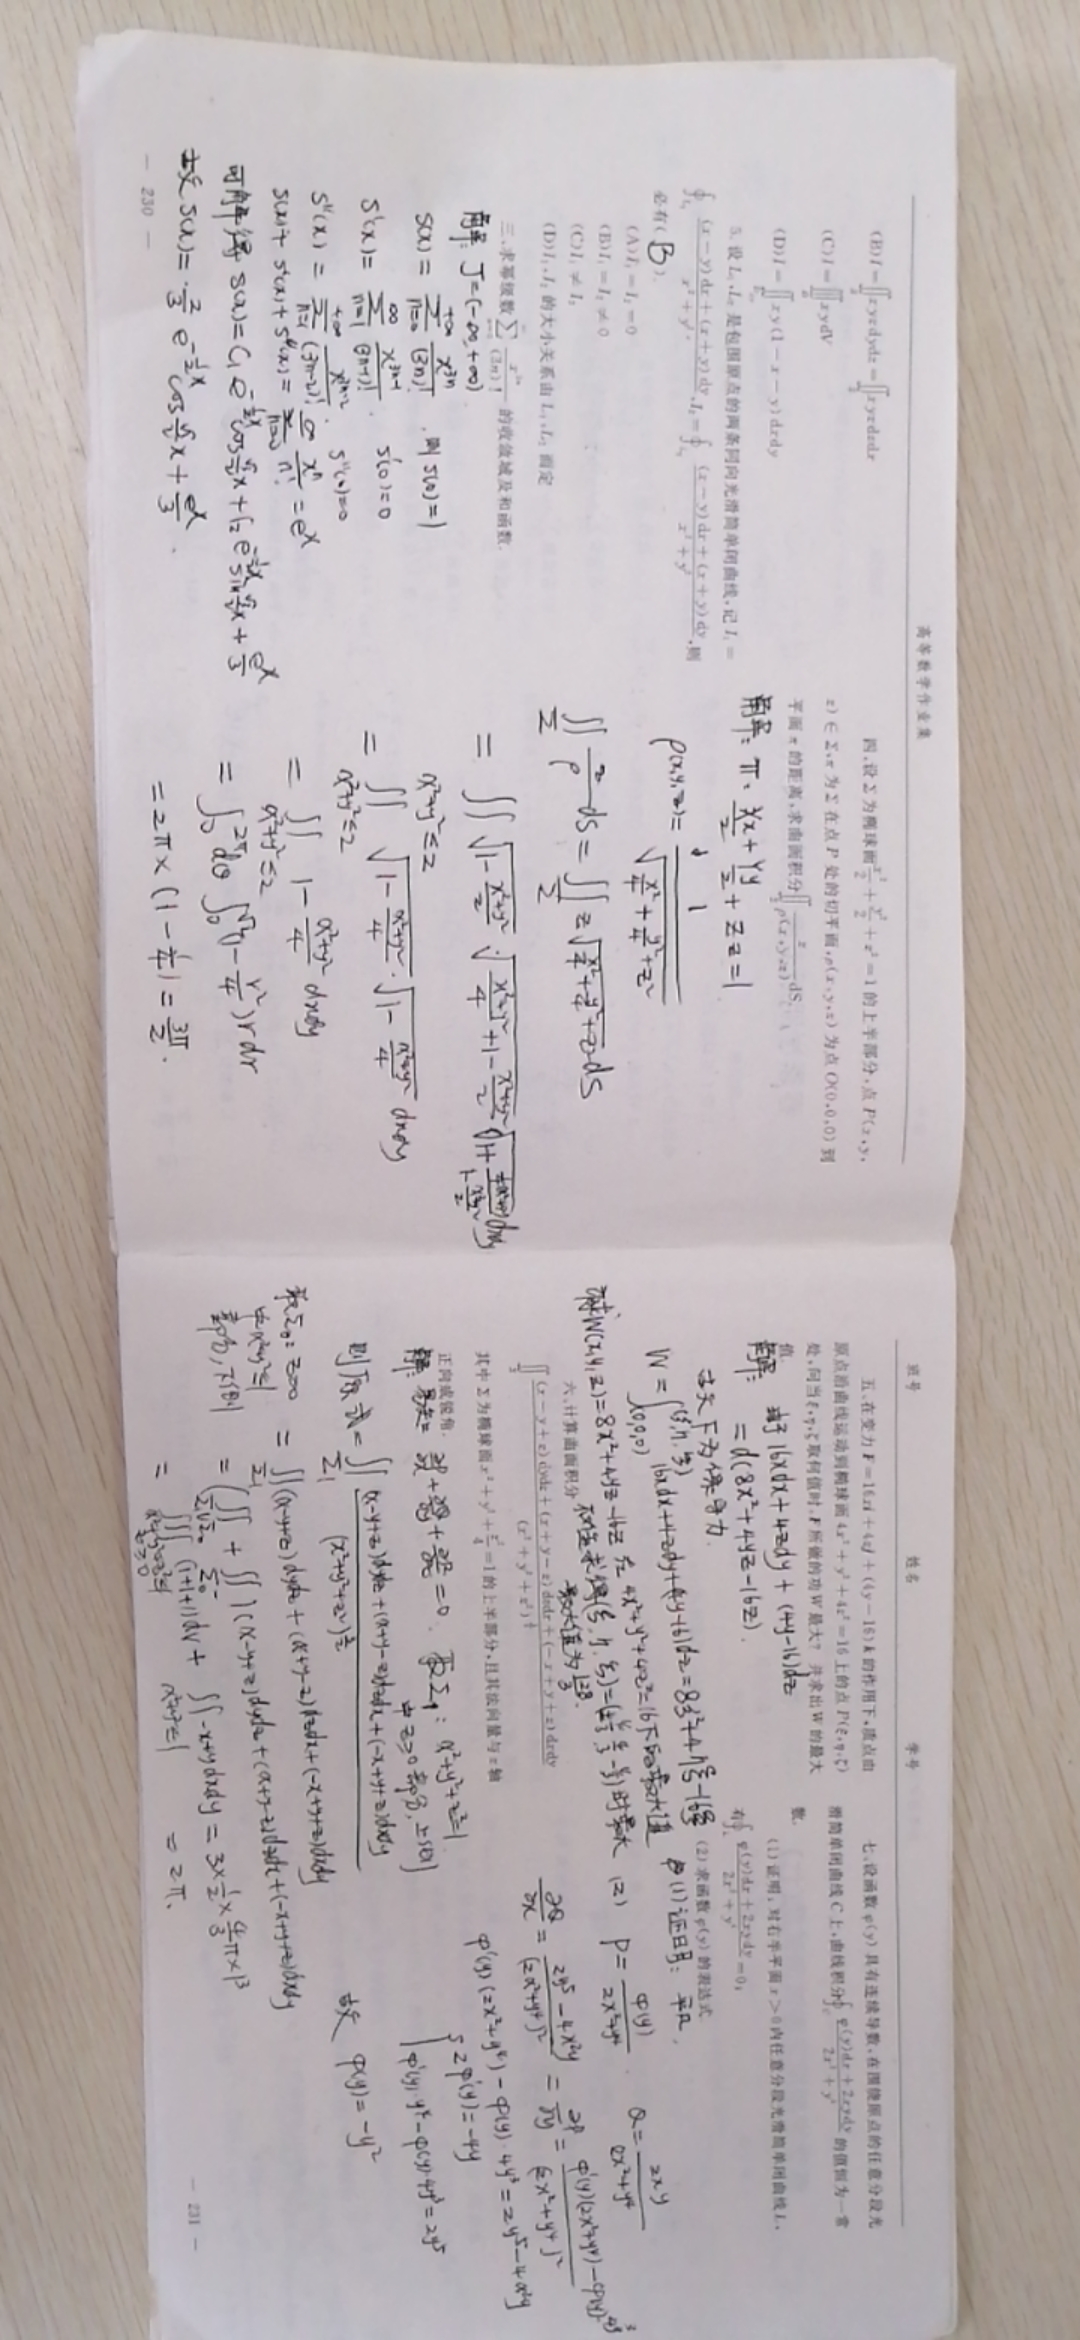 高等数学作业集
(B) I=∬xyzdydz=∬xyzdzdx
(C) I=∭xydV
(D) I=∬xy(1-x-y)dxdy
5. 设 L₁,L₂ 是包围原点的两条同向光滑简单闭曲线,记 I₁=
∮(x-y)dx+(x+y)dy/x²+y², I₂=∮(x-y)dx+(x+y)dy/x²+y²,则
必有( B ).
(A) I₁=I₂=0
(B) I₁=I₂≠0
(C) I₁≠I₂
(D) I₁,I₂ 的大小关系由 L₁,L₂ 而定
三、求幂级数∑ 的收敛域及和函数.
解: J=(-∞,+∞)
S(x)=∑_{n=0}^{+∞} x^{3n}/(3n)! .则 S(0)=1
S'(x)=∑_{n=1}^{∞} x^{3n-1}/(3n-1)! . S'(0)=0
S''(x)=∑_{n=1}^{+∞} x^{3n-2}/(3n-2)! . S''(0)=0
S(x)+S'(x)+S''(x)=∑_{n=0}^{∞} xⁿ/n! =e^x
可解得 S(x)=C₁e^{-½x}cos √3/2 x+C₂e^{-½x}sin √3/2 x+e^x/3
故 S(x)=2/3 e^{-½x}cos √3/2 x+e^x/3.
— 230 —
四、设 Σ 为椭球面 x²/2+y²/2+z²=1 的上半部分,点 P(x,y,
z)∈Σ,π 为 Σ 在点 P 处的切平面,ρ(x,y,z) 为点 O(0,0,0) 到
平面 π 的距离,求曲面积分∬ z/ρ(x,y,z) dS.
解: π: Xx/2+Yy/2+Zz=1
ρ(x,y,z)=1/√(x²/4+y²/4+z²)
∬_Σ z/ρ dS=∬_Σ z√(x²/4+y²/4+z²)dS
=∬_{x²+y²≤2} √(1-(x²+y²)/2)·√((x²+y²)/4+1-(x²+y²)/2) dxdy
=∬_{x²+y²≤2} √(1-(x²+y²)/4)·√(1-(x²+y²)/4) dxdy
=∬_{x²+y²≤2} 1-(x²+y²)/4 dxdy
=∫₀^{2π}dθ∫₀^{√2}(1-r²/4)rdr
=2π×(1-1/4)=3π/2.
班号 姓名 学号
五、在变力 F=16xi+4zj+(4y-16)k 的作用下,质点由
原点沿曲线运动到椭球面 4x²+y²+4z²=16 上的点 P(ξ,η,ζ)
处,问当 ξ,η,ζ 取何值时,F 所做的功 W 最大? 并求出 W 的最大
值.
解: 由于 16xdx+4zdy+(4y-16)dz
=d(8x²+4yz-16z).
故 F 为保守力.
W=∫_{(0,0,0)}^{(ξ,η,ζ)} 16xdx+4zdy+(4y-16)dz=8ξ²+4ηζ-16ζ
求W(x,y,z)=8x²+4yz-16z 在 4x²+y²+4z²=16下的最大值
求得(ξ,η,ζ)=(±4/3,-4/3,-4/3)时最大
最大值为128/3.
六、计算曲面积分
∬(x-y+z)dydz+(x+y-z)dzdx+(-x+y+z)dxdy/(x²+y²+z²)
其中 Σ 为椭球面 x²+y²+z²/4=1 的上半部分,且其法向量与 z 轴
正向成锐角.
解: 易知 ∂P/∂x+∂Q/∂y+∂R/∂z=0. 取Σ₁: x²+y²+z²=1
中z≥0部分,上侧
则原式=∬_{Σ₁} (x-y+z)dydz+(x+y-z)dzdx+(-x+y+z)dxdy/(x²+y²+z²)^{3/2}
取Σ₀: z=0
中x²+y²≤1
部分,下侧
=∬_{Σ₁}(x-y+z)dydz+(x+y-z)dzdx+(-x+y+z)dxdy
=(∬_{Σ₁∪Σ₀}+∬_{Σ₀⁻})(x-y+z)dydz+(x+y-z)dzdx+(-x+y+z)dxdy
=∭_{x²+y²+z²≤1 z≥0}(1+1+1)dv+∬_{x²+y²≤1}-x+ydxdy=3×½×4/3π×1³
=2π.
七、设函数 φ(y) 具有连续导数,在围绕原点的任意分段光
滑简单闭曲线 C 上,曲线积分∮ φ(y)dx+2xydy/2x²+y⁴ 的值恒为一常
数.
(1) 证明,对右半平面 x>0 内任意分段光滑简单闭曲线 L,
有∮ φ(y)dx+2xydy/2x²+y⁴=0;
(2) 求函数 φ(y) 的表达式.
(1)证明: 平凡.
(2) P=φ(y)/2x²+y⁴ . Q=2xy/2x²+y⁴
∂Q/∂x=2y⁵-4x²y/(2x²+y⁴)²=∂P/∂y=φ'(y)(2x²+y⁴)-φ(y)·4y³/(2x²+y⁴)²
φ'(y)(2x²+y⁴)-φ(y)·4y³=2y⁵-4x²y
{ 2φ'(y)=-4y
φ'(y)·y⁴-φ(y)·4y³=2y⁵
故 φ(y)=-y²
— 231 —